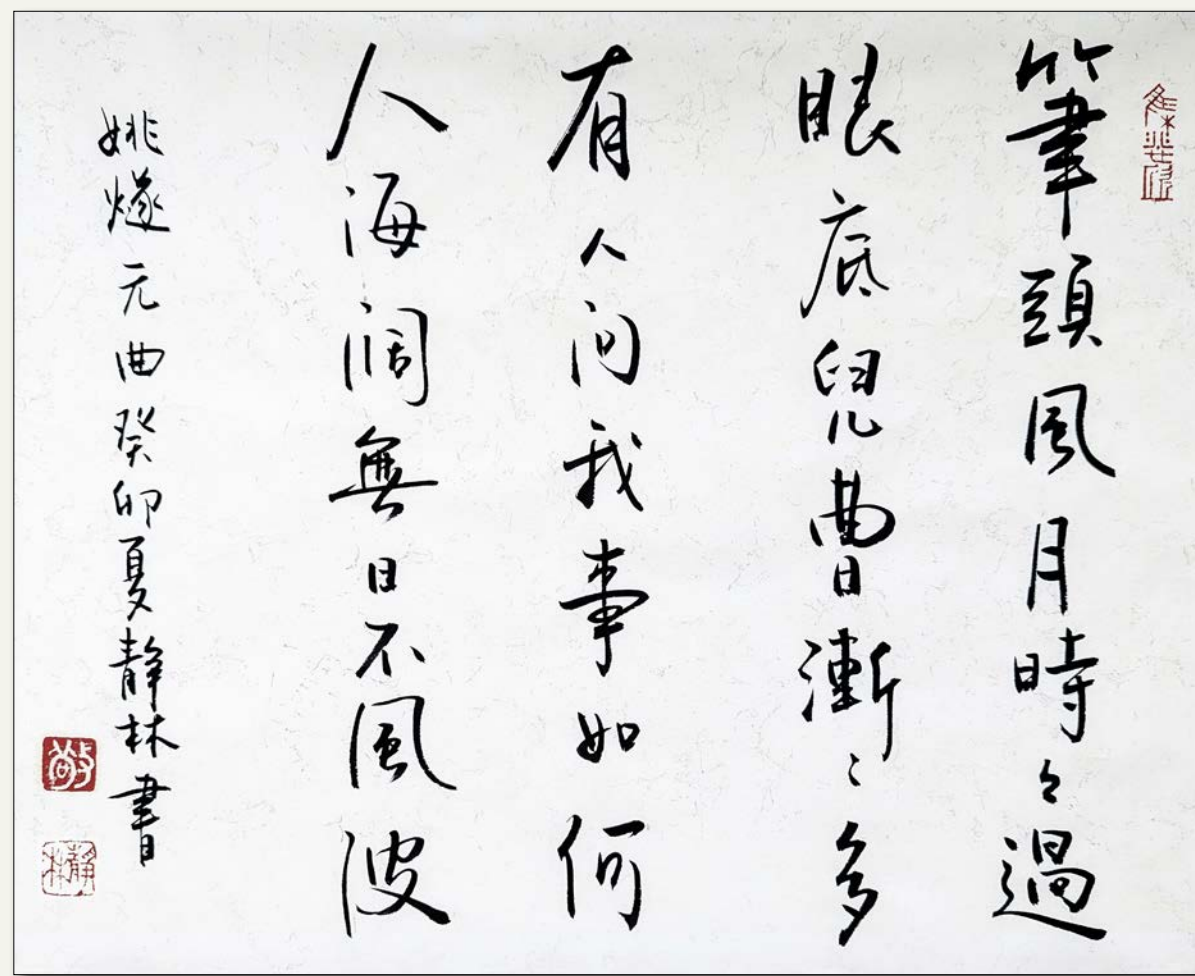 筆頭風月時々過
眼底兒曹漸々多
有人問我事如何
人海闊無日不風波
姚燧元曲癸卯夏靜林書
靜林